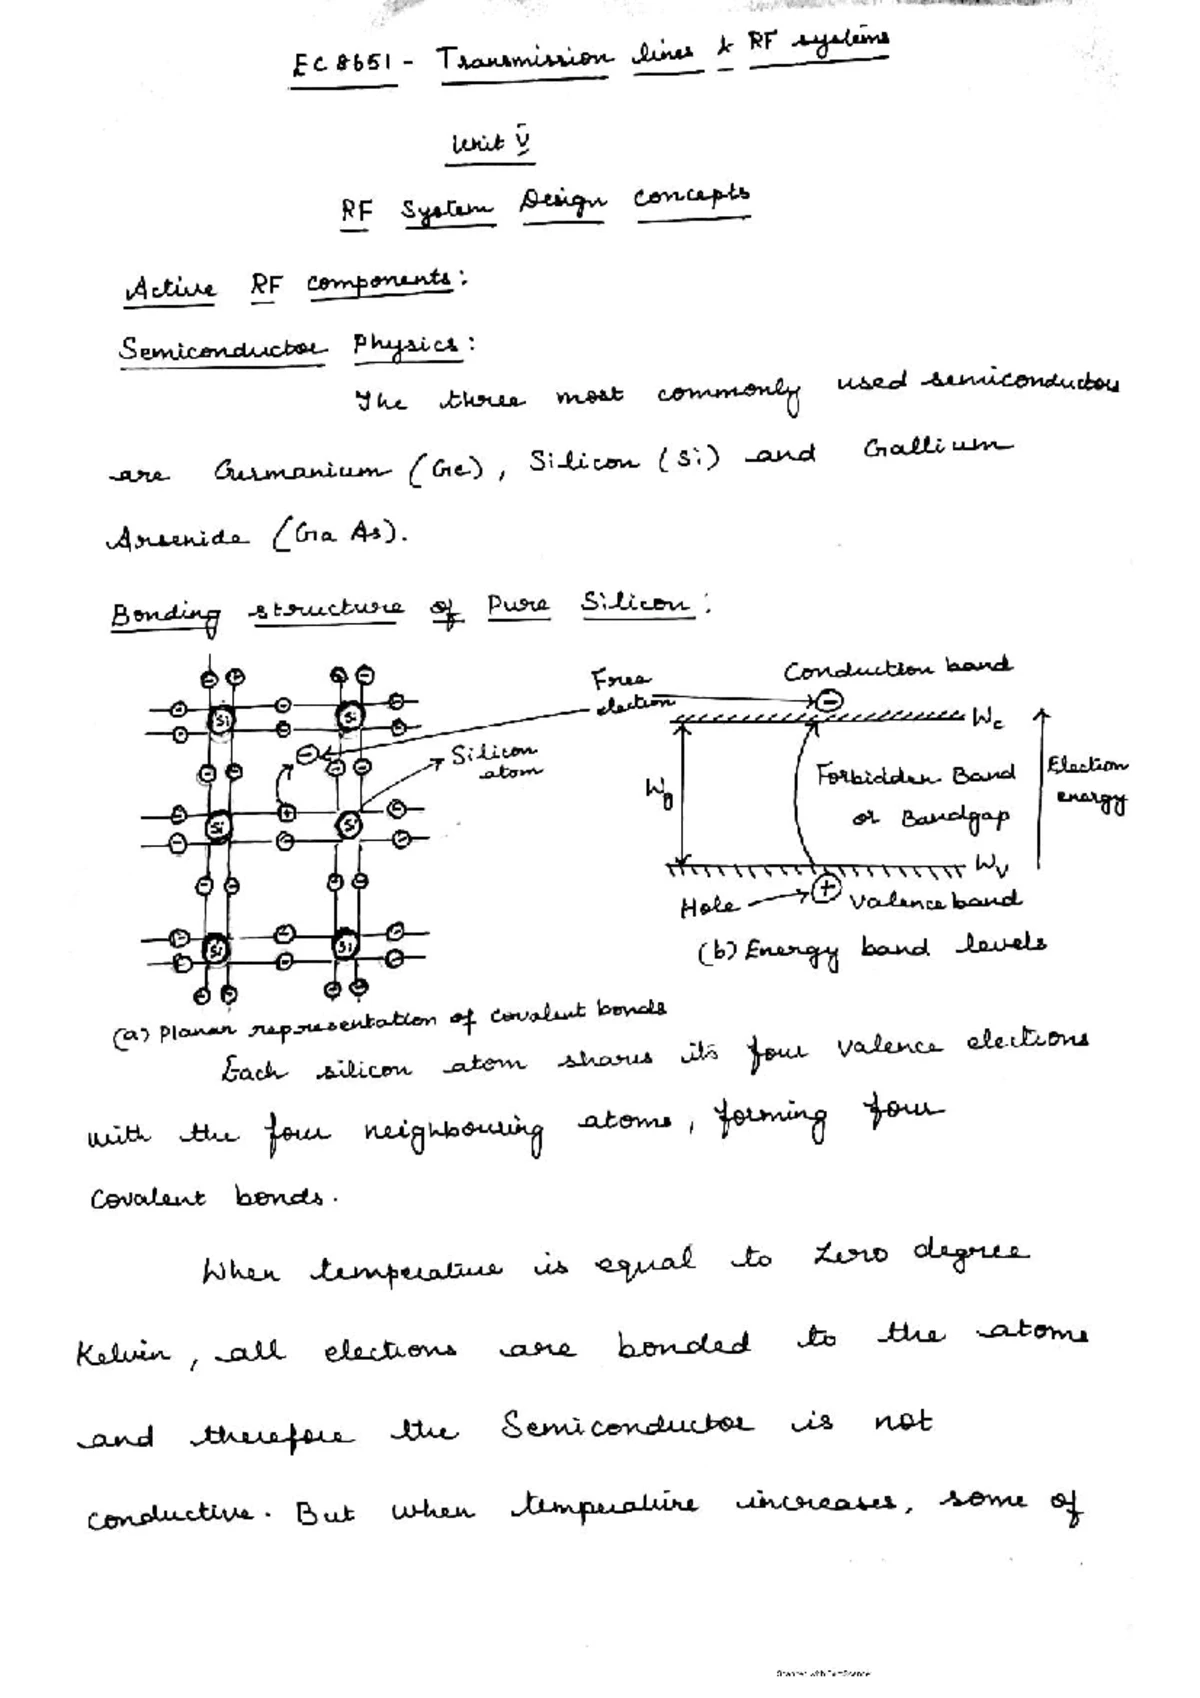 EC8651 - Transmission lines & RF systems
Unit V
RF System Design concepts
Active RF components:
Semiconductor Physics:
The three most commonly used semiconductors
are Germanium (Ge), Silicon (Si) and Gallium
Arsenide (Ga As).
Bonding structure of Pure Silicon:
Si
Si
Si
Si
Si
Si
Free
electron
Silicon
atom
Conduction band
Wc
Wg
Forbidden Band
or Bandgap
Electron
energy
Wv
Hole
Valence band
(b) Energy band levels
(a) Planar representation of covalent bonds
Each silicon atom shares its four valence electrons
with the four neighbouring atoms, forming four
covalent bonds.
When temperature is equal to zero degree
Kelvin, all electrons are bonded to the atoms
and therefore the Semiconductor is not
conductive. But when temperature increases, some of
Scanned with CamScanner